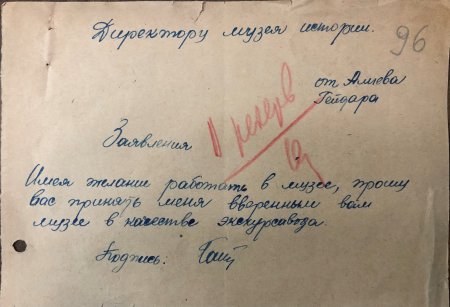 Директору музея истории.
96
от Алиева
Гейдара
В резерв
Заявления
Имея желание работать в музее, прошу
вас принять меня вверенным вам
музее в качестве экскурсавода.
Подпись: